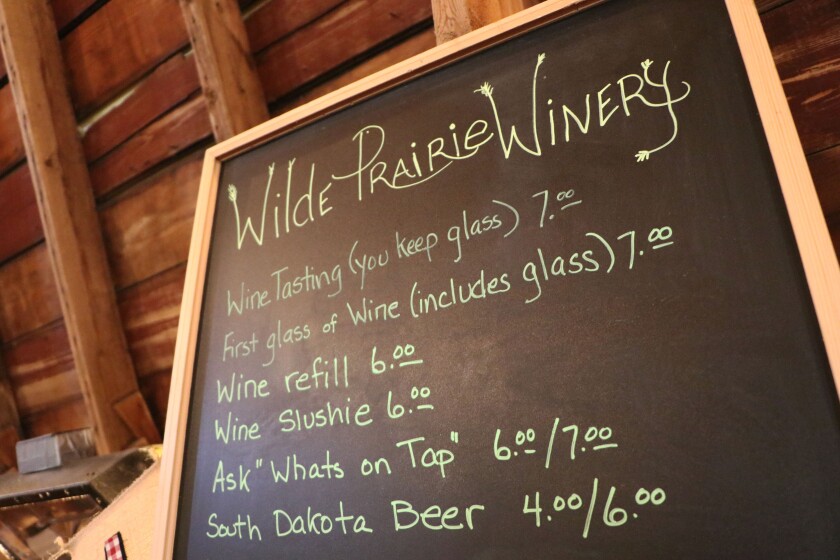 Wilde Prairie Winery
Wine Tasting (you keep glass) 7.00
First glass of Wine (includes glass) 7.00
Wine refill 6.00
Wine Slushie 6.00
Ask "Whats on Tap" 6.00/7.00
South Dakota Beer 4.00/6.00